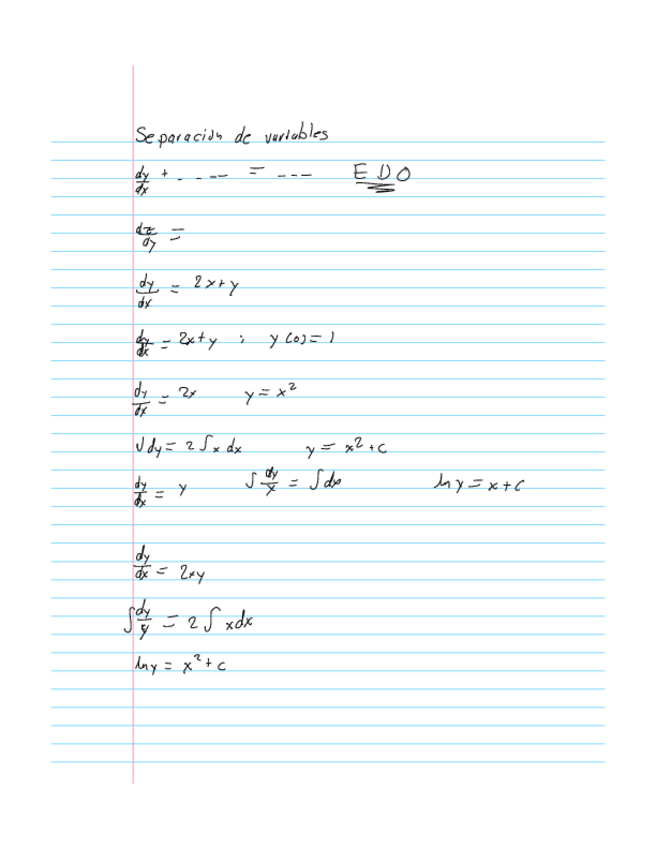 Separación de variables
dy/dx + - - - -- = - - - EDO
dz/dy =
dy/dx = 2x+y
dy/dx = 2x+y ; y(0)=1
dy/dx = 2x y = x²
∫dy = 2∫x dx y = x²+c
dy/dx = y ∫dy/y = ∫dx ln y = x+c
dy/dx = 2xy
∫dy/y = 2∫xdx
ln y = x²+c